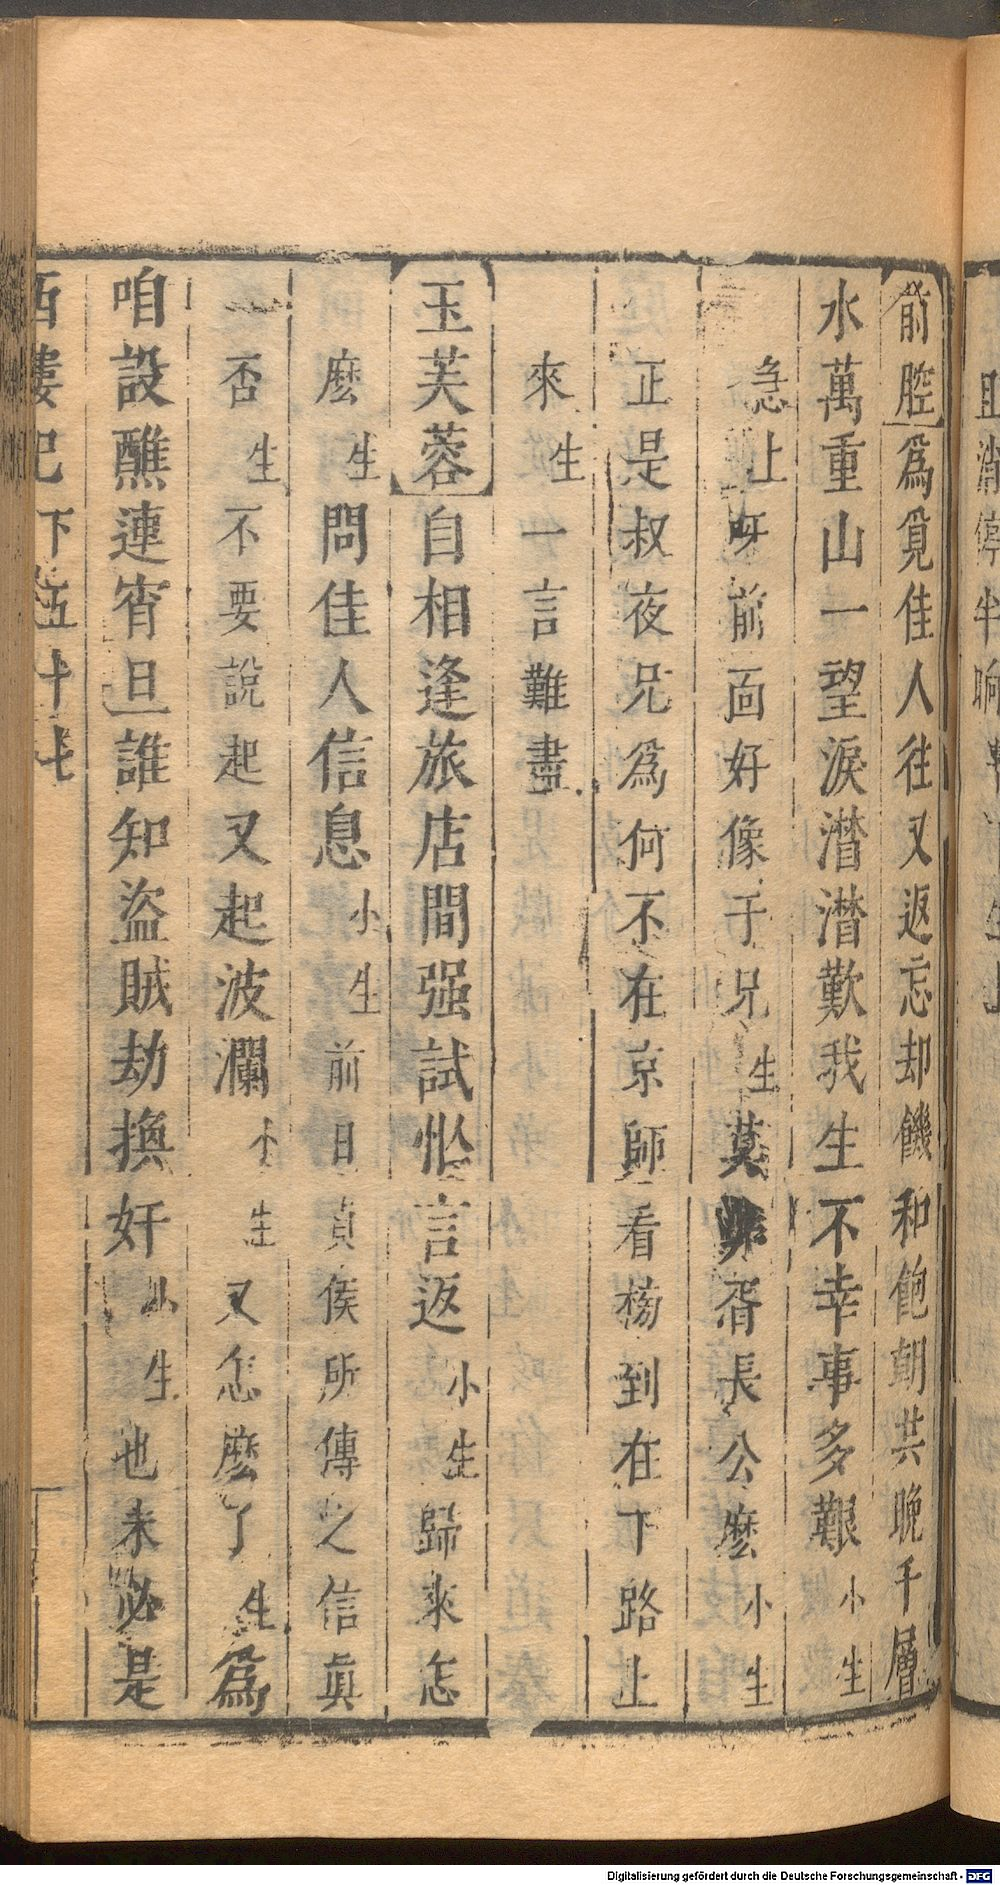 前腔爲覓佳人往又返忘却饑和飽朝共晚千層
水萬重山一望淚潸潸歎我生不幸事多艱小生
急上呀前面好像于兄生莫非胥長公麽小生
正是叔夜兄爲何不在京師看榜到在下路上
來生一言難盡
玉芙蓉自相逢旅店間强試忙言返小生歸來怎
麽生問佳人信息小生前日貞侯所傳之信眞
否生不要說起又起波瀾小生又怎麽了生爲
咱設醮連宵旦誰知盜賊劫換奸小生也未必是
西樓記下五十七
且消停半晌
Digitalisierung gefördert durch die Deutsche Forschungsgemeinschaft - DFG